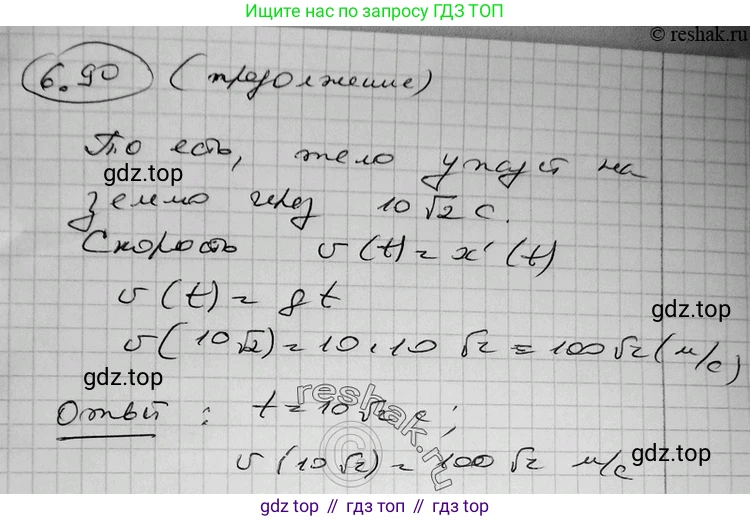 Ищите нас по запросу ГДЗ ТОП
© reshak.ru
6.90 (продолжение)
То есть, тело упадёт на
gdz.top
землю через 10√2 с.
Скорость v(t) = x'(t)
v(t) = gt
gdz.top
v(10√2) = 10·10√2 = 100√2 (м/с)
gdz.top
Ответ: t = 10√2 с;
reshak.ru
v(10√2) = 100√2 м/с
gdz.top
gdz.top // гдз.топ // gdz.top